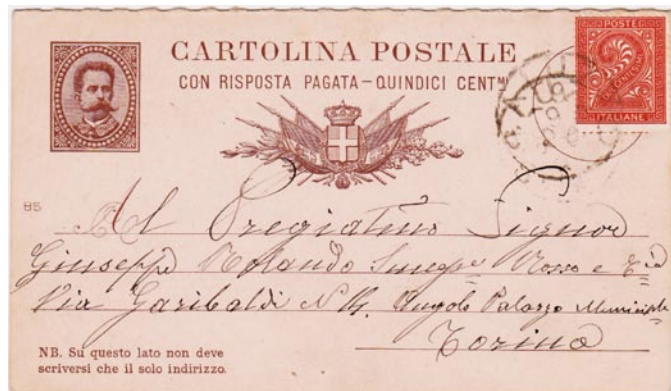 CARTOLINA POSTALE
CON RISPOSTA PAGATA – QUINDICI CENTMI
POSTE
DUE CENTESIMI
ITALIANE
85
Al Pregiatmo Signor
Giuseppe Rolando Rosso e Cia
Via Garibaldi N Angolo Palazzo Municipale
Torino
NB. Su questo lato non deve
scriversi che il solo indirizzo.